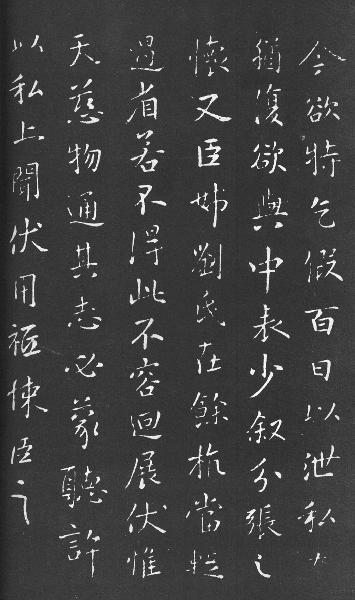 今欲特乞假百日以泄私
猶復欲與中表少敘分張之
懷又臣姊劉氏在餘杭當
過省若不得此不容迴展伏惟
天慈物通其志必蒙聽許
以私上聞伏用祗悚臣之